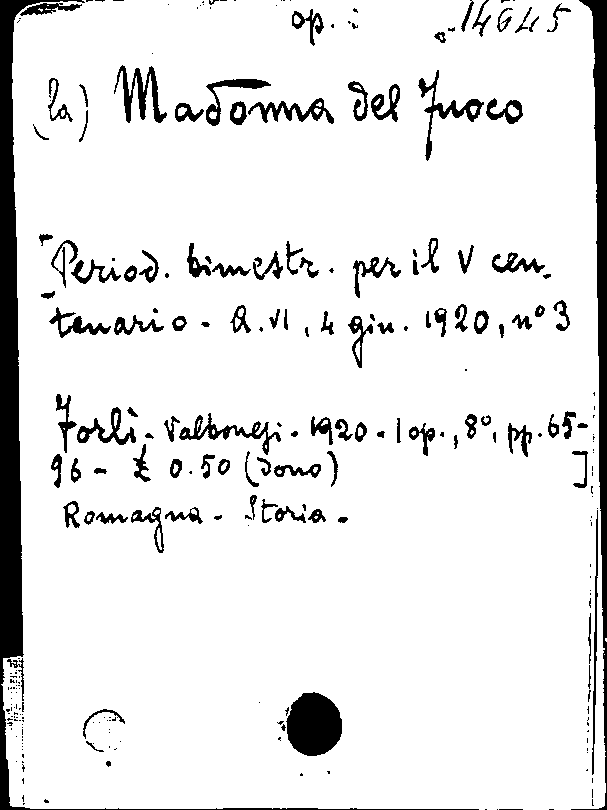 op. i 14645
(la) Madonna del Fuoco
[Period. bimestr. per il V cen-
tenario - A. VI, 4 giu. 1920, n° 3
Forlì - Valbonesi - 1920 - 1 op., 8°, pp. 65-
96 - £ 0.50 (Dono) ]
Romagna - Storia -